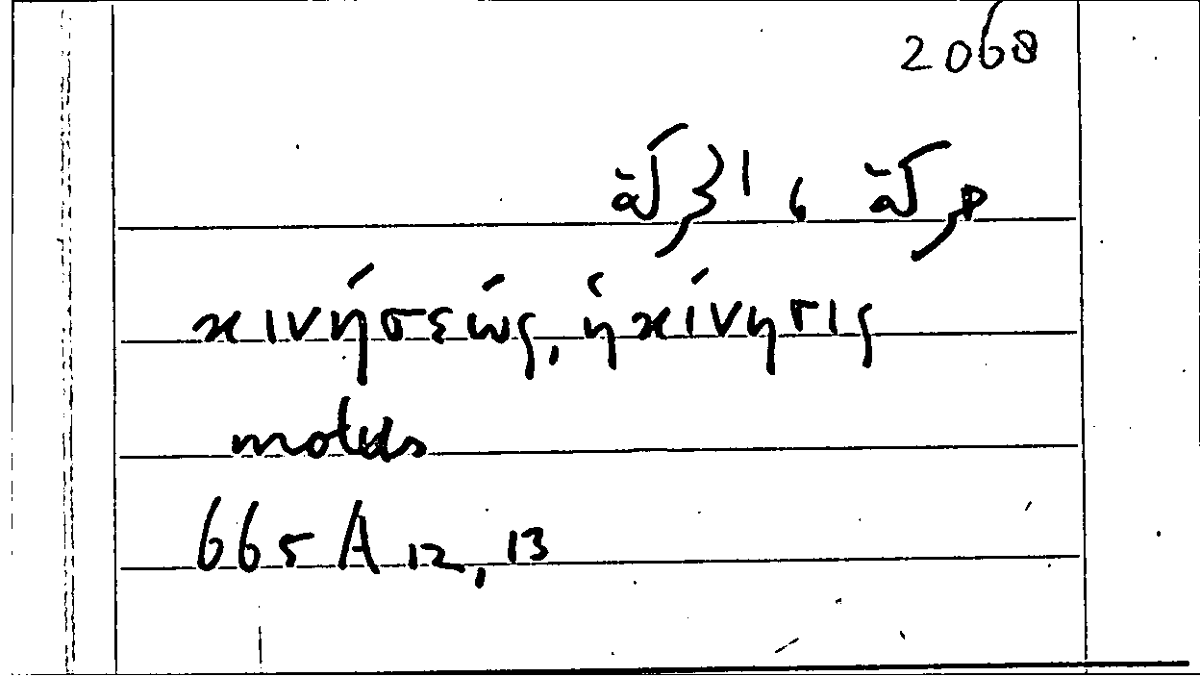 2068
حركة ، الحركة
κινήσεώς, ἡ κίνησις
665 A 12, 13